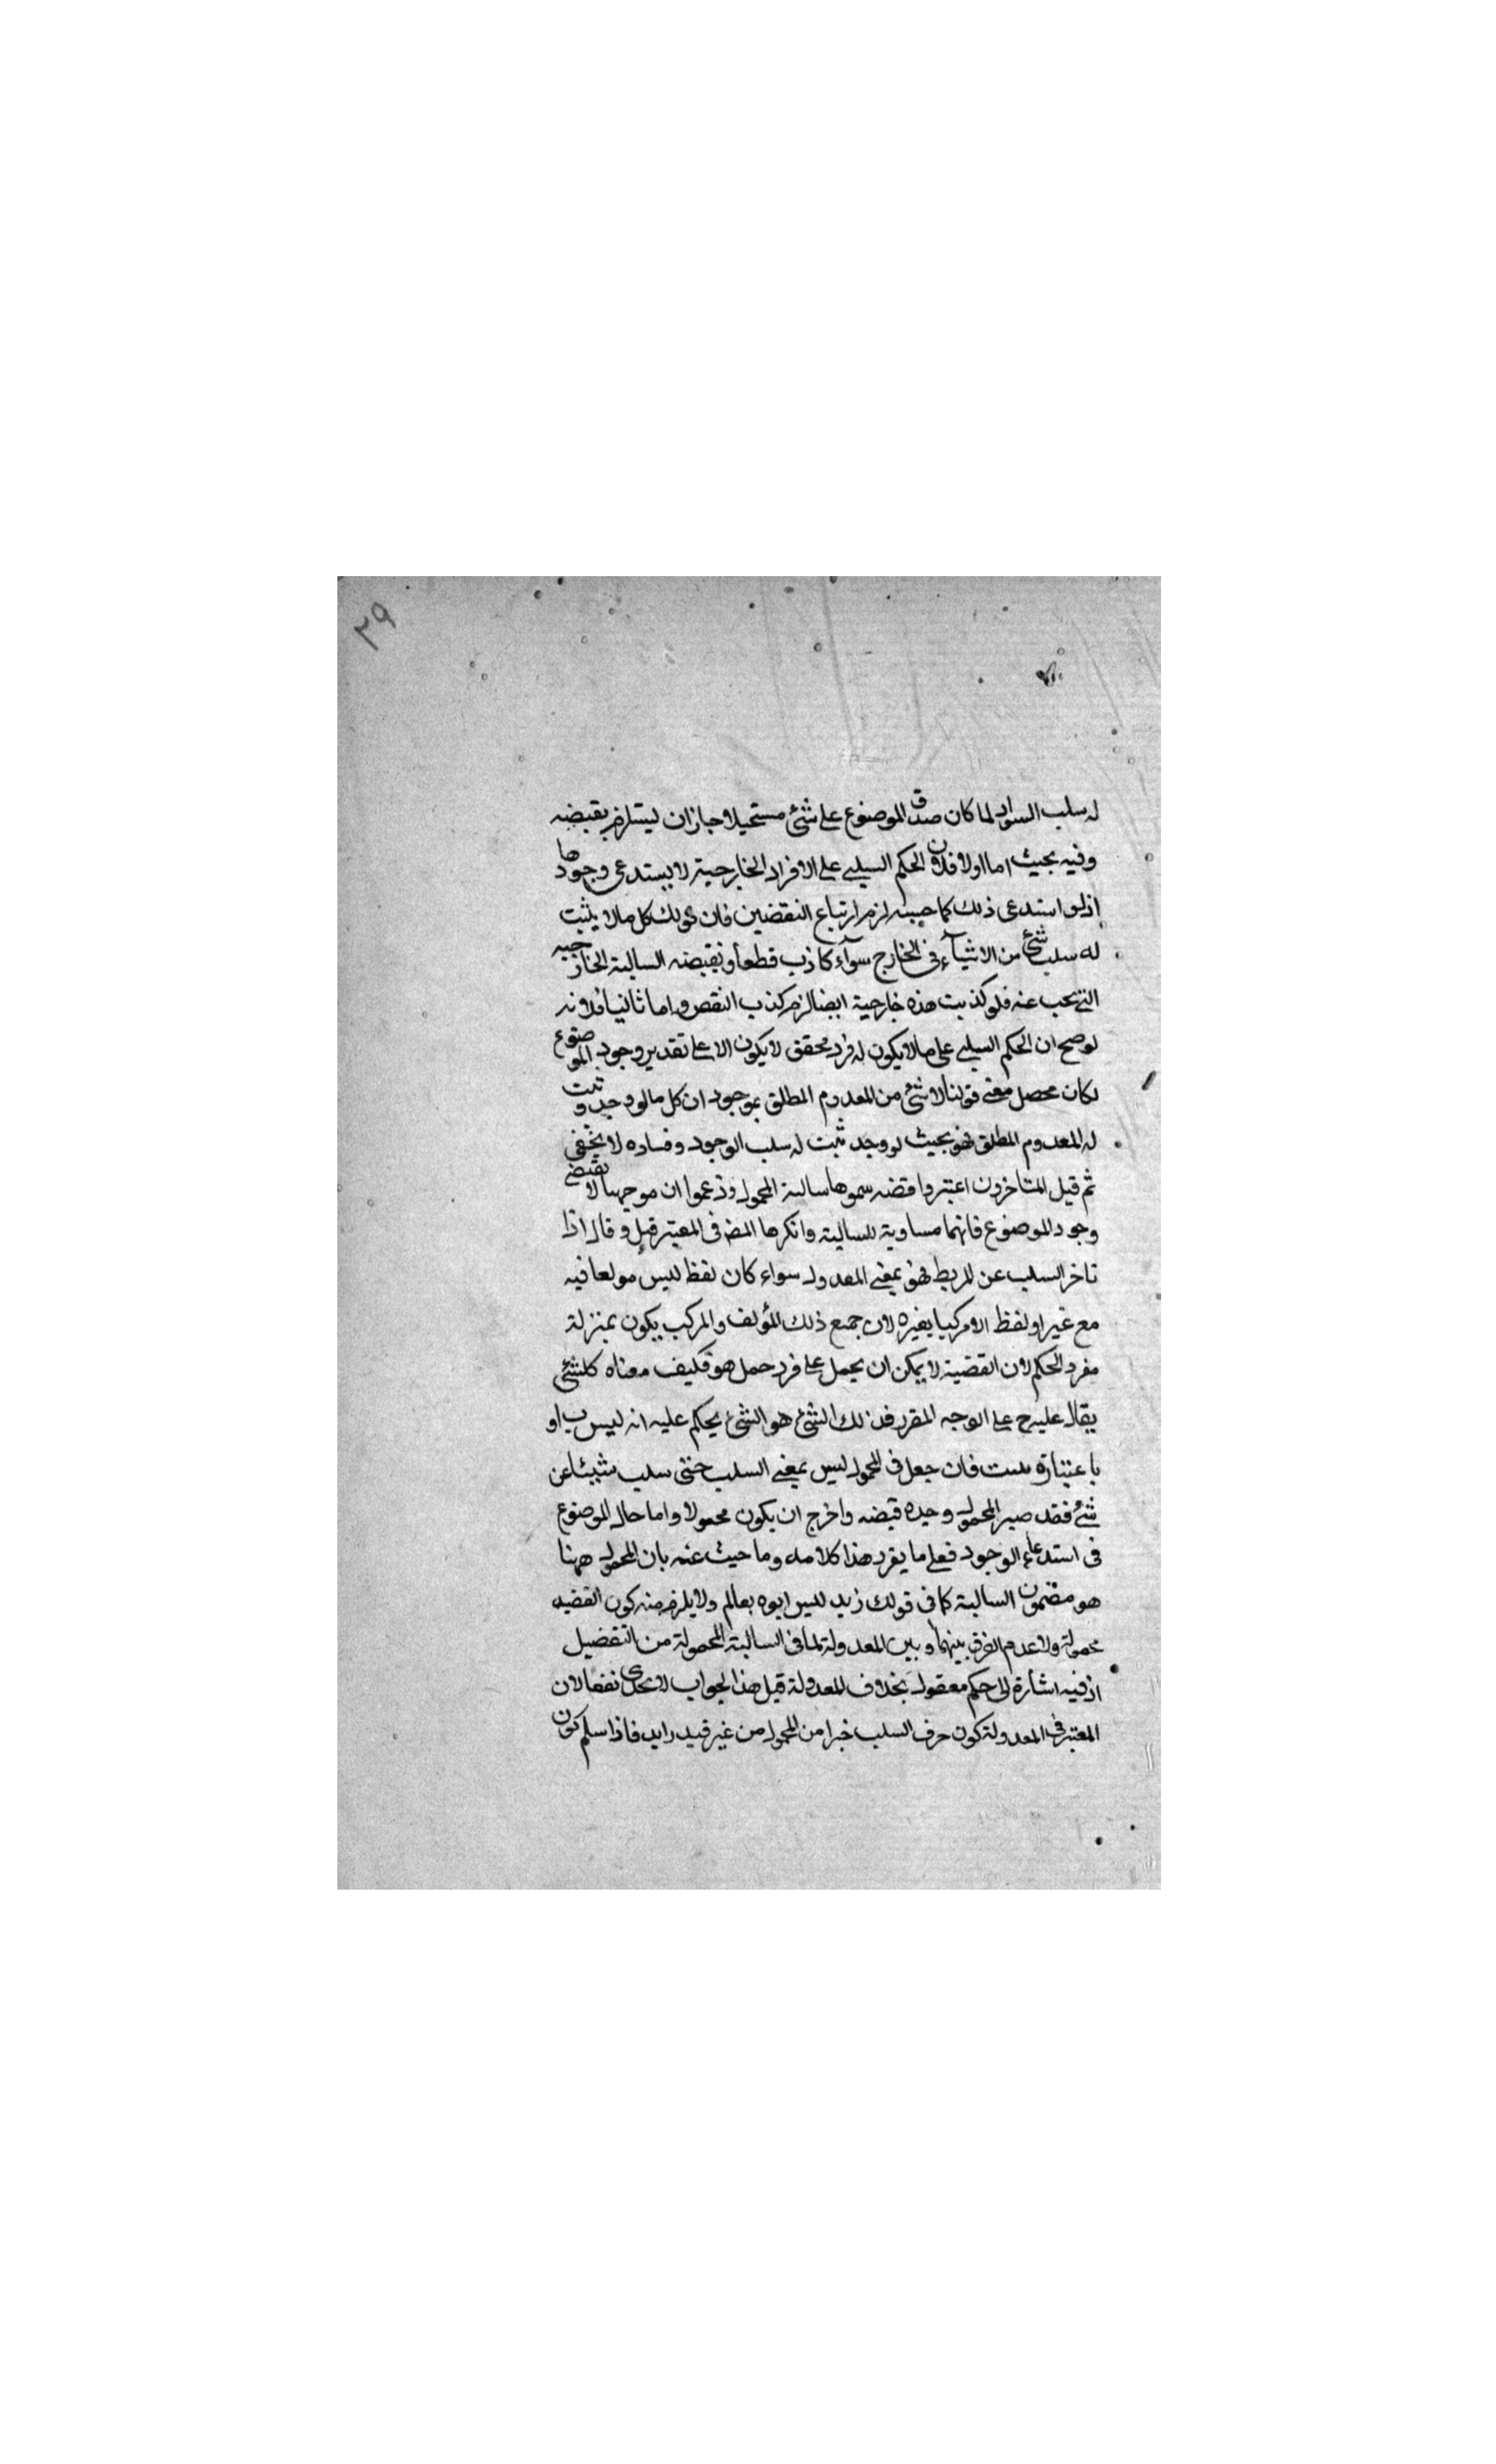 ٢٩
له سلب السواد لما كان صدق الموضوع على شئ مستحيلا وجازان ليستلزم بقيضه
وفيه بحيث اما اولا فلان الحكم السلبى على الافراد الخارجية لا يستدعى وجودها
اذ لو استدعى ذلك كما حبسه لزم ارتباع النقضين فان كولك كل مالا يثبت
له سلب شئ من الاشياء فى الخارج سواء كاذب قطعا ونقيضه السالبة الخارجيه
التى يحب عنه فلو كذبت هذه خارجية ايضا لزم كذب النقص واما ثانيا فلانه
لوصح ان الحكم السلبى على مالايكون له فرد محقق لايكون الا على تقدير وجود الموضوع
لكان محصل معنى قولنا لاشئ من المعدوم المطلق بموجود ان كل مالو وجد وثبت
له المعدوم المطلق فهو بحيث لو وجد ثبت له سلب الوجود وفساده لا يخفى
ثم قيل المتاخرون اعتبروا قضه سموها سالبة المحمول وزعموا ان موجبها لا تقتضى
وجود الموضوع فانها مساوية للسالبة وانكرها المض فى المعتبر قيل وقال اذا
تاخر السلب عن الربط فهو بمعنى المعدول سواء كان لفظ ليس مولعا فيه
مع غير او لفظ الامركبا بغيره لان جميع ذلك المؤلف والمركب يكون بمنزلة
مفرد الحكم لان القضية لا يمكن ان يحمل على فرد حمل هو فكيف معناه كلشئ
يقال عليه ج على الوجه المقرر فذلك الشئ هو الشئ يحكم عليه انه ليس ب او
باعتباره فان جعل فى المحمول ليس بمعنى السلب حتى سلب شيئا عن
شئ فقد صير المحمول وحده قيضه واخرج ان يكون محمولا واما حال الموضوع
فى استدعاء الوجود فعلى ما يقرر هذا كلامه وما حيث عنه بان المحمول ههنا
هو مضمون السالبة كما فى قولك زيد ليس ابوه بعالم ولا يلزم منه كون القضيه
محمولة ولا عدم الفرق بينها وبين المعدولة لما فى السالبة المحمولة من التفضيل
اذ فيه اشارة الى حكم معقول بخلاف المعدولة قيل هذا الجواب لا يجدى نفعا لان
المعتبر فى المعدولة كون حرف السلب خبرا من المحمول من غير قيد رايد فاذا سلم كون